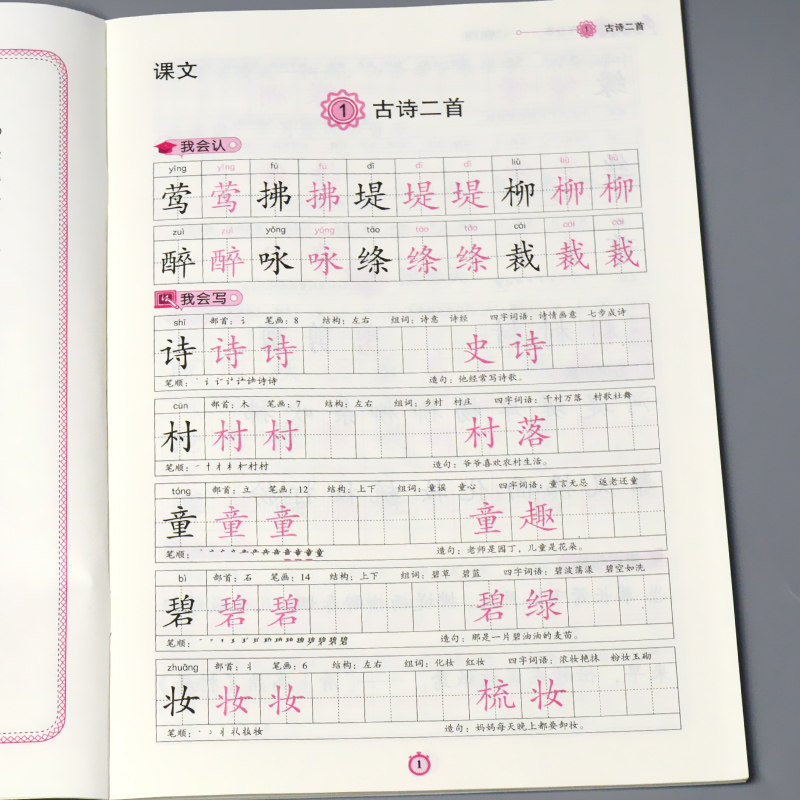 1 古诗二首
课文
1 古诗二首
我会认
yīng yīng fú fú dī dī dī liǔ liǔ liǔ
莺 莺 拂 拂 堤 堤 堤 柳 柳 柳
zuì zuì yǒng yǒng tāo tāo tāo cái cái cái
醉 醉 咏 咏 绦 绦 绦 裁 裁 裁
我会写
shī 部首：讠 笔画：8 结构：左右 组词：诗意 诗经 四字词语：诗情画意 七步成诗
诗 诗 诗 史 诗
笔顺： 造句：他经常写诗歌。
cūn 部首：木 笔画：7 结构：左右 组词：乡村 村庄 四字词语：千村万落 村歌社舞
村 村 村 村 落
笔顺： 造句：爷爷喜欢农村生活。
tóng 部首：立 笔画：12 结构：上下 组词：童谣 童心 四字词语：童言无忌 返老还童
童 童 童 童 趣
笔顺： 造句：老师是园丁，儿童是花朵。
bì 部首：石 笔画：14 结构：上下 组词：碧草 碧蓝 四字词语：碧波荡漾 碧空如洗
碧 碧 碧 碧 绿
笔顺： 造句：那是一片碧油油的麦苗。
zhuāng 部首：丬 笔画：6 结构：左右 组词：化妆 红妆 四字词语：浓妆艳抹 粉妆玉砌
妆 妆 妆 梳 妆
笔顺： 造句：妈妈每天晚上都要卸妆。
1